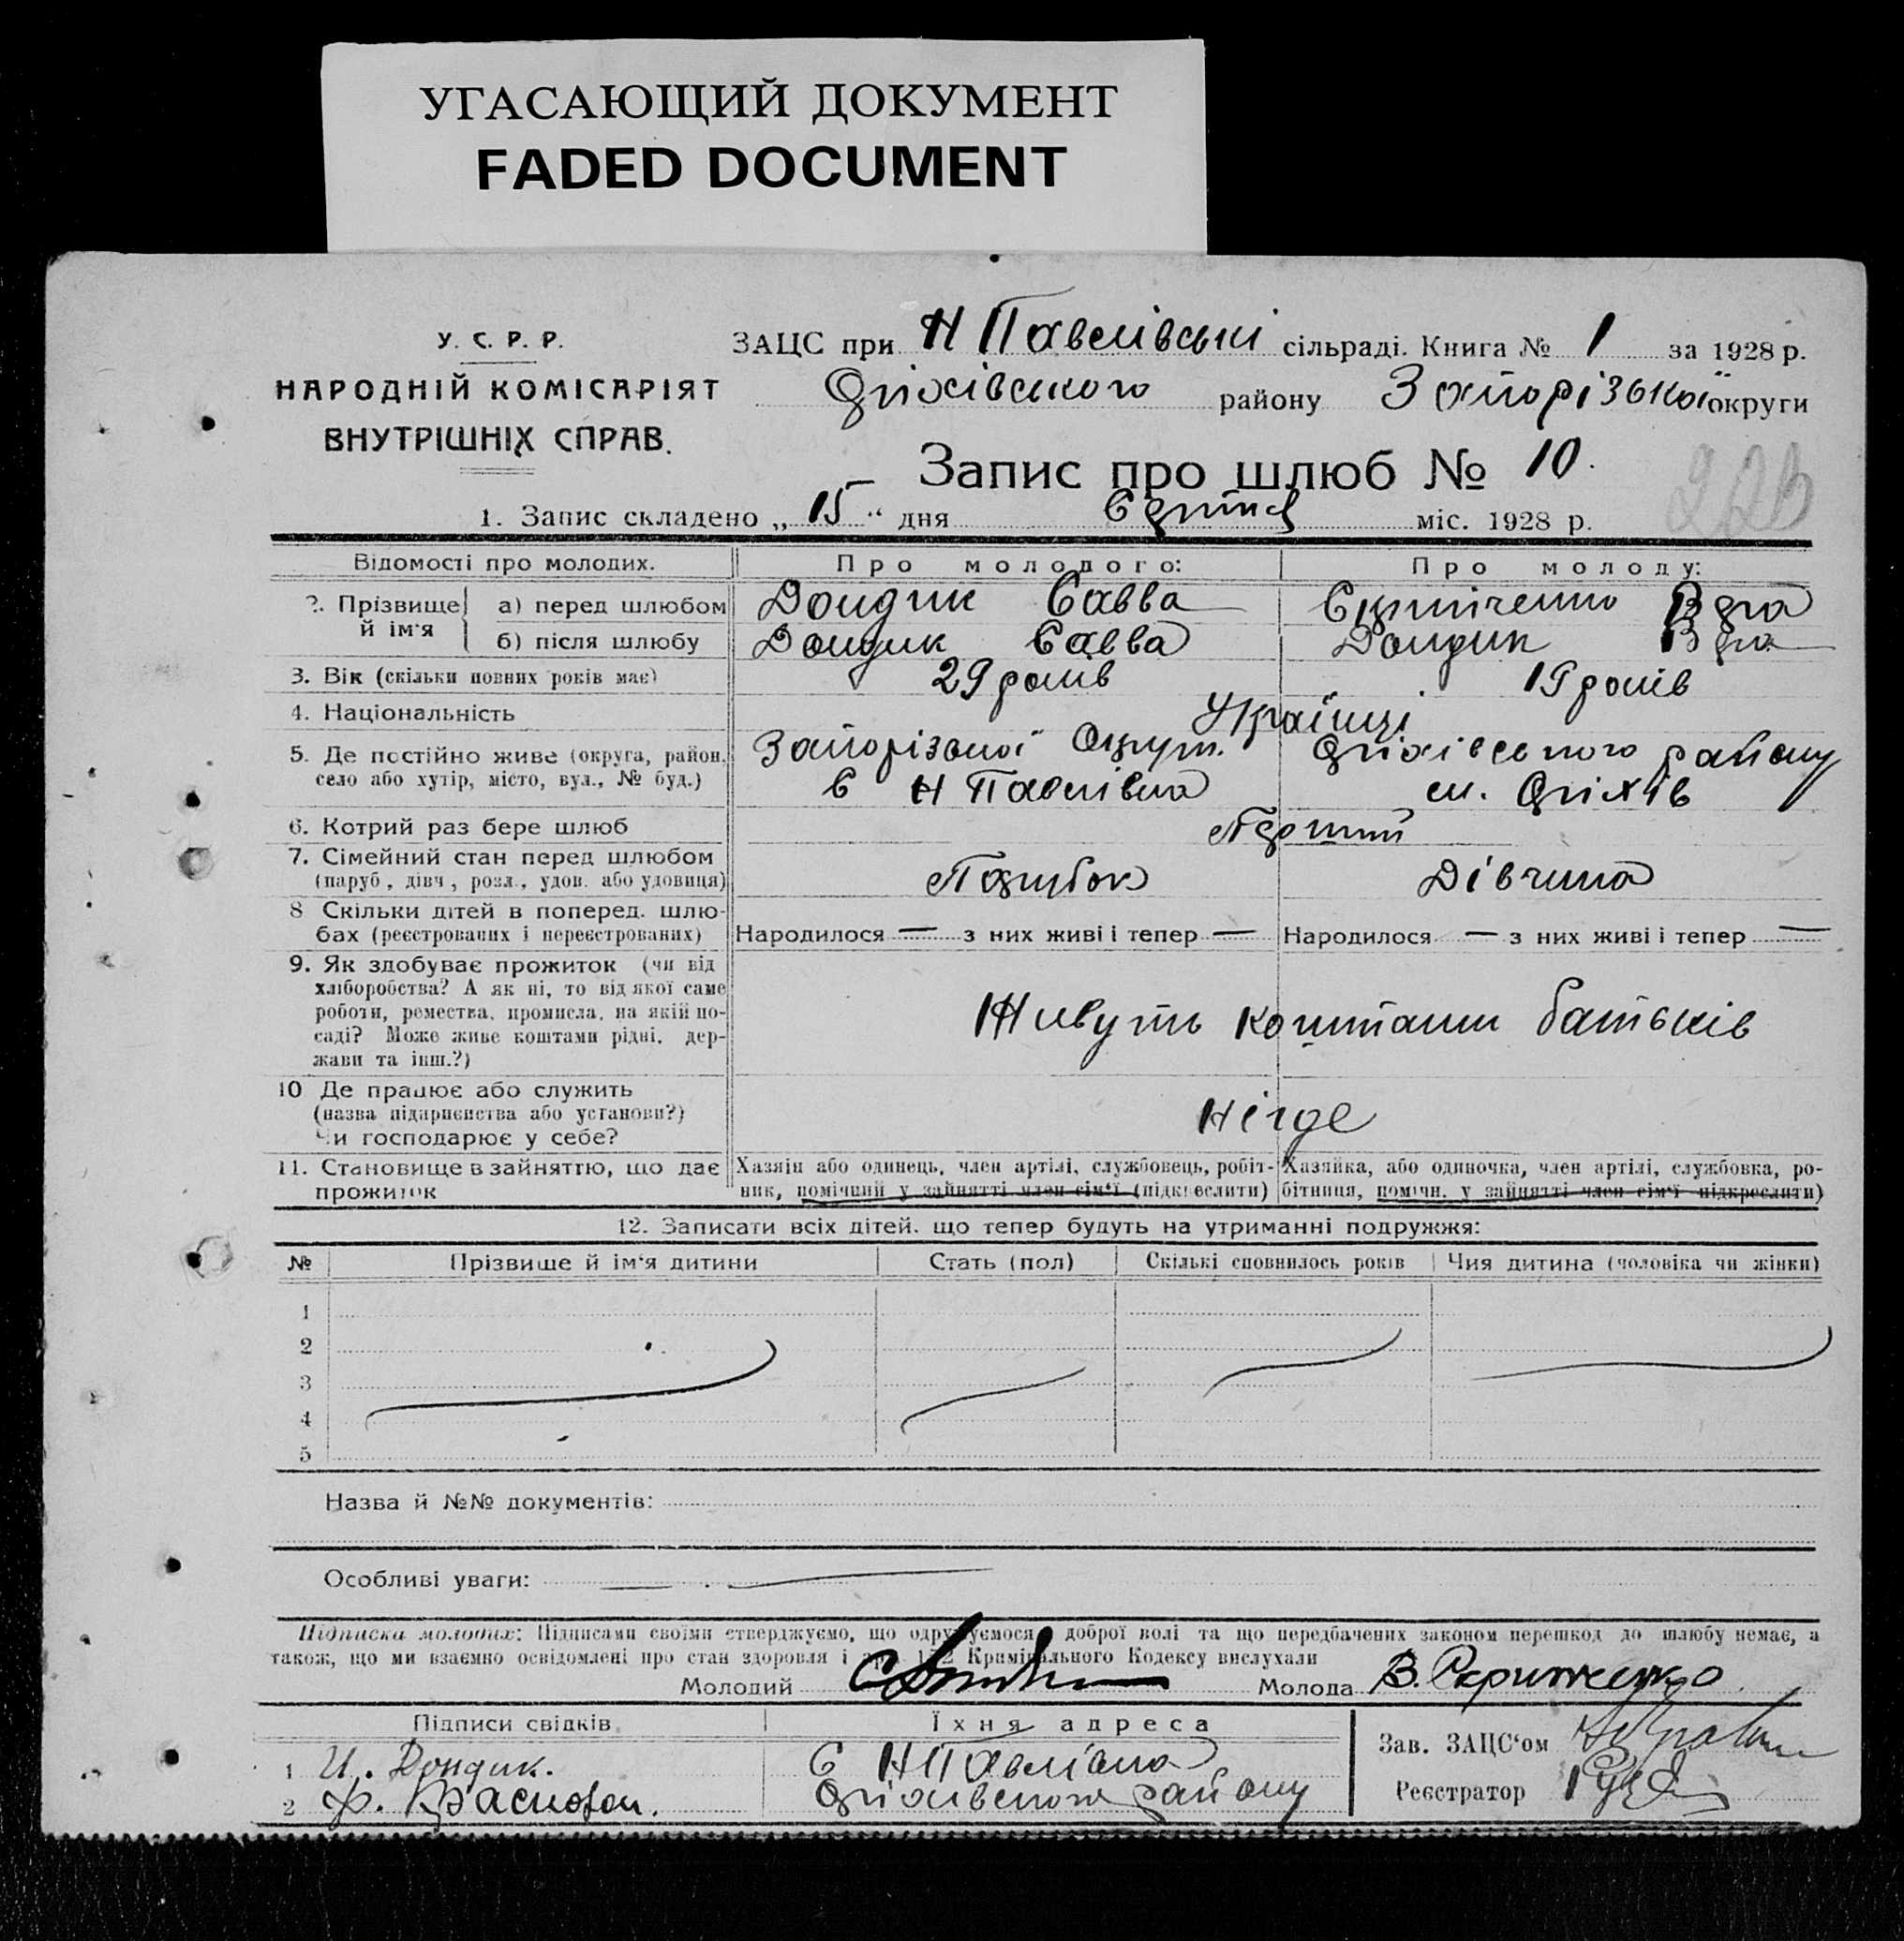 УГАСАЮЩИЙ ДОКУМЕНТ
FADED DOCUMENT
У. С. Р. Р.
НАРОДНІЙ КОМІСАРІЯТ
ВНУТРІШНІХ СПРАВ.
ЗАЦС при Н Павлівські сільраді. Книга № 1 за 1928 р.
Оріхівського району Запорізької округи
Запис про шлюб № 10.
1. Запис складено „ 15 " дня Серпня міс. 1928 р.
Відомості про молодих. Про молодого: Про молоду:
2. Прізвище й ім'я а) перед шлюбом Дондик Савва Скрипченко Віра
б) після шлюбу Дондик Савва Дондик Віра
3. Вік (скільки повних років має) 29 років 19 років
4. Національність Українці
5. Де постійно живе (округа, район, Запорізької Округи. Оріхівського району
село або хутір, місто, вул., № буд.) С Н Павлівка м. Оріхів
6. Котрий раз бере шлюб Перший
7. Сімейний стан перед шлюбом
(паруб, дівч, розл., удов. або удовиця) Парубок Дівчина
8 Скільки дітей в поперед. шлю-
бах (реєстрованих і нереєстрованих) Народилося — з них живі і тепер — Народилося — з них живі і тепер —
9. Як здобуває прожиток (чи від
хліборобства? А як ні, то від якої саме
роботи, ремества, промисла, на якій по-
саді? Може живе коштами рідні, дер-
жави та інш.?) Живуть коштами батьків
10 Де працює або служить
(назва підприємства або установи?)
Чи господарює у себе? Нігде
11. Становище в зайняттю, що дає Хазяїн або одинець, член артілі, службовець, робіт- Хазяйка, або одиночка, член артілі, службовка, ро-
прожиток ник, помічний у зайнятті член сім'ї (підкреслити) бітниця, помічн. у зайнятті член сім'ї підкреслити)
12. Записати всіх дітей, що тепер будуть на утриманні подружжя:
№ Прізвище й ім'я дитини Стать (пол) Скількі сповнилось років Чия дитина (чоловіка чи жінки)
1
2
3
4
5
Назва й №№ документів:
Особливі уваги:
Підписка молодих: Підписами своїми стверджуємо, що одружуємося доброї волі та що передбачених законом перешкод до шлюбу немає, а
також, що ми взаємно освідомлені про стан здоровля і Кримінального Кодексу вислухали
Молодий Молода В. Скрипченко
Підписи свідків Їхня адреса Зав. ЗАЦС'ом
1 И. Дондик. С Н Павлівка
2 Ф. Оріхівського району Реєстратор